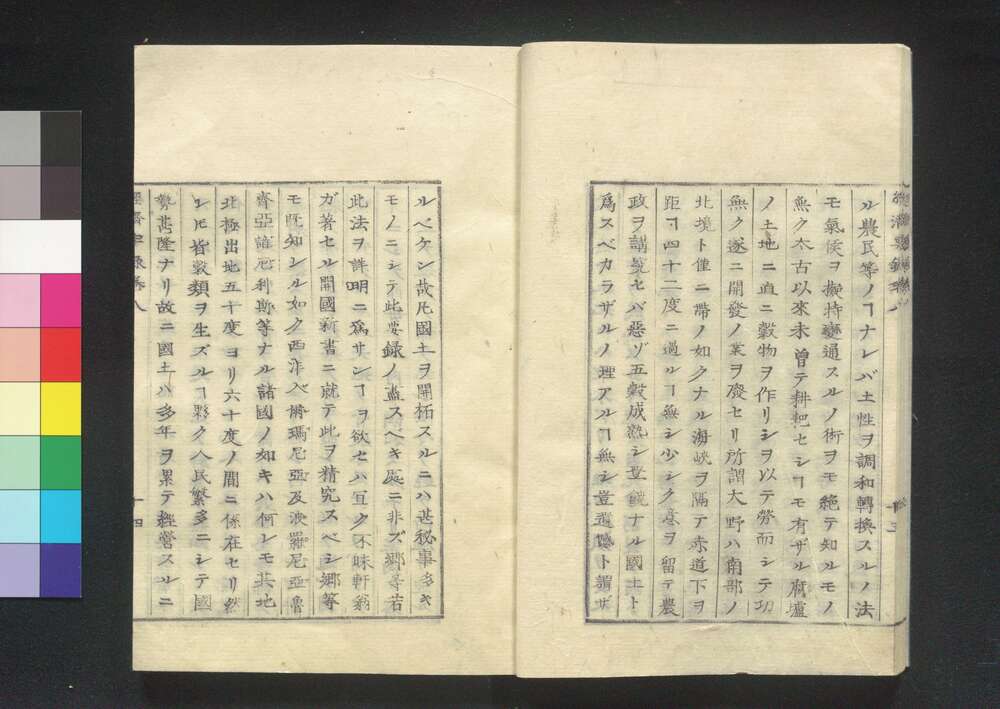 ル農民等ノヿナレバ土性ヲ調和轉換スルノ法
モ氣候ヲ擬持變通スルノ術ヲモ絶テ知ルモノ
無ク太古以來未曾テ耕耙セシヿモ有ザル腐壚
ノ土地ニ直ニ穀物ヲ作リシヲ以テ勞而シテ功
無ク遂ニ開發ノ業ヲ廢セリ所謂大野ハ南部ノ
北境ト僅ニ帶ノ如クナル海峽ヲ隔テ赤道下ヲ
距ヿ四十二度ニ過ルヿ無シ少シク意ヲ留テ農
政ヲ講究セバ惡ゾ五穀成熟シ豊饒ナル國土ト
爲スベカラザルノ理アルヿ無シ豈遺憾ト謂ザ
ルベケン哉凡國土ヲ開拓スルニハ甚秘事多キ
モノニシテ此要録ノ盡スベキ處ニ非ズ郷等若
此法ヲ詳明ニ爲サンヿヲ欲セハ宜ク不昧軒翁
ガ著セル開國新書ニ就テ此ヲ精究スベシ郷等
モ既知シル如ク西洋入爾瑪尼亞及波羅尼亞魯
齊亞諳厄利斯等ナル諸國ノ如キハ何レモ其地
北極出地五十度ヨリ六十度ノ間ニ係在セリ然
シ𪜈皆穀類ヲ生ズルヿ夥ク人民繁多ニシテ國
勢甚隆ナリ故ニ國土ハ多年ヲ累テ經營スルニ
十四